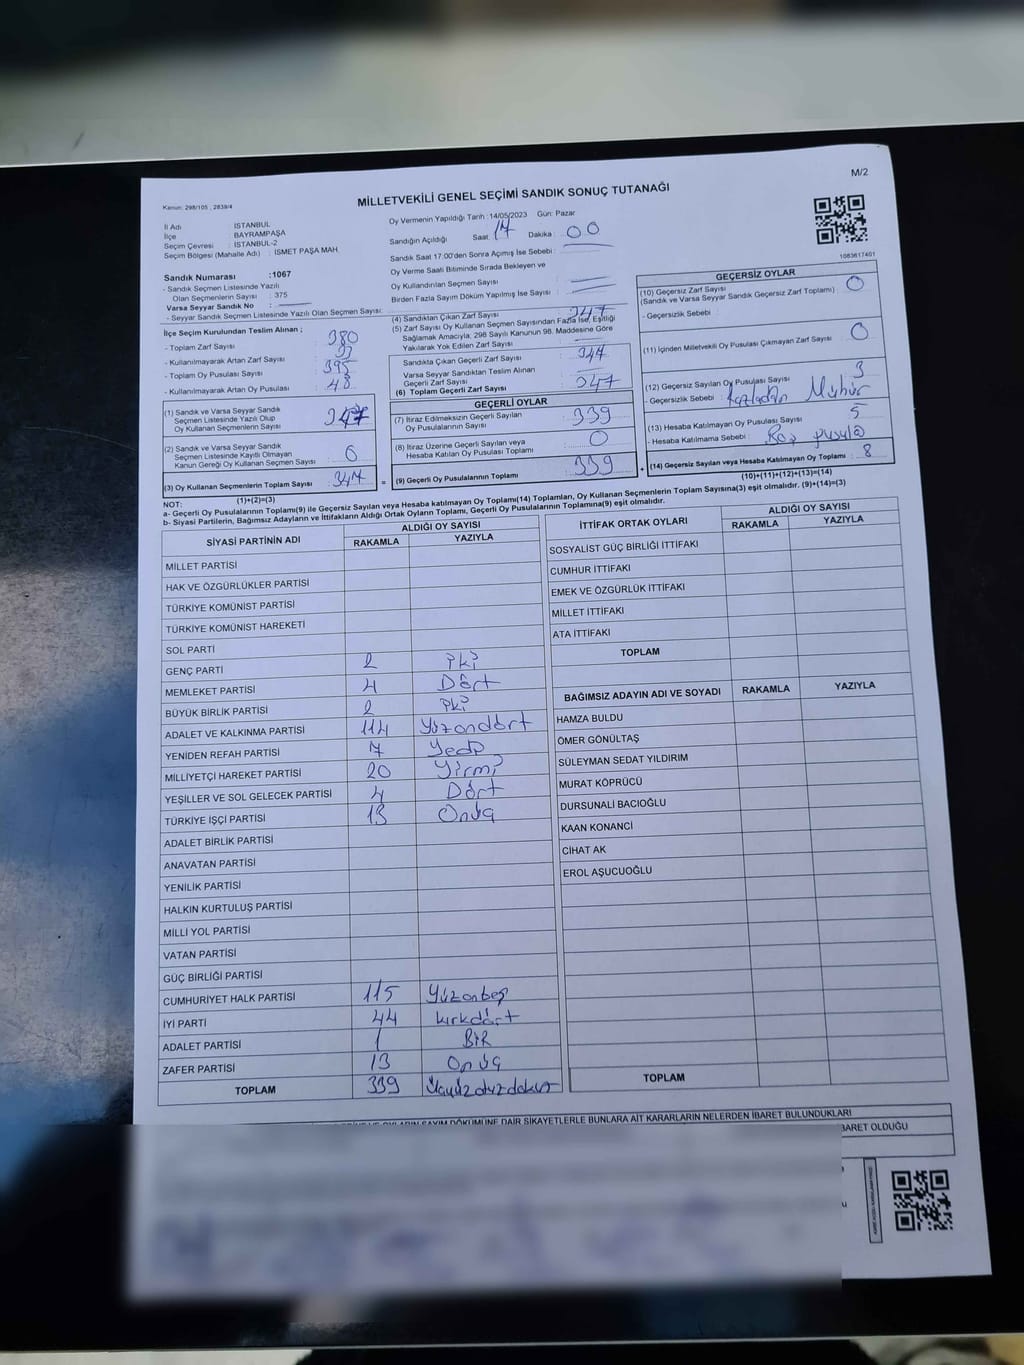 M/2
Kanun: 298/105 , 2839/4
MİLLETVEKİLİ GENEL SEÇİMİ SANDIK SONUÇ TUTANAĞI
İl Adı : İSTANBUL
İlçe : BAYRAMPAŞA
Seçim Çevresi : İSTANBUL-2
Seçim Bölgesi (Mahalle Adı) : İSMET PAŞA MAH.
Sandık Numarası :1067
- Sandık Seçmen Listesinde Yazılı
Olan Seçmenlerin Sayısı : 375
Varsa Seyyar Sandık No :
- Seyyar Sandık Seçmen Listesinde Yazılı Olan Seçmen Sayısı:
Oy Vermenin Yapıldığı Tarih :14/05/2023 Gün: Pazar
Sandığın Açıldığı Saat: 17 Dakika : 00
Sandık Saat 17:00'den Sonra Açımış İse Sebebi :
Oy Verme Saati Bitiminde Sırada Bekleyen ve
Oy Kullandırılan Seçmen Sayısı :
Birden Fazla Sayım Döküm Yapılmış İse Sayısı :
1083617401
İlçe Seçim Kurulundan Teslim Alınan ;
- Toplam Zarf Sayısı : 380
- Kullanılmayarak Artan Zarf Sayısı :
- Toplam Oy Pusulası Sayısı : 395
- Kullanılmayarak Artan Oy Pusulası : 48
(1) Sandık ve Varsa Seyyar Sandık
Seçmen Listesinde Yazılı Olup
Oy Kullanan Seçmenlerin Sayısı : 347
(2) Sandık ve Varsa Seyyar Sandık
Seçmen Listesinde Kayıtlı Olmayan
Kanun Gereği Oy Kullanan Seçmen Sayısı : 0
(3) Oy Kullanan Seçmenlerin Toplam Sayısı : 347
(1)+(2)=(3)
(4) Sandıktan Çıkan Zarf Sayısı : 347
(5) Zarf Sayısı Oy Kullanan Seçmen Sayısından Fazla İse, Eşitliği
Sağlamak Amacıyla, 298 Sayılı Kanunun 98. Maddesine Göre
Yakılarak Yok Edilen Zarf Sayısı :
Sandıkta Çıkan Geçerli Zarf Sayısı : 347
Varsa Seyyar Sandıktan Teslim Alınan
Geçerli Zarf Sayısı :
(6) Toplam Geçerli Zarf Sayısı : 347
GEÇERLİ OYLAR
(7) İtiraz Edilmeksizin Geçerli Sayılan
Oy Pusulalarının Sayısı : 339
(8) İtiraz Üzerine Geçerli Sayılan veya
Hesaba Katılan Oy Pusulası Toplamı : 0
(9) Geçerli Oy Pusulalarının Toplamı : 339
GEÇERSİZ OYLAR
(10) Geçersiz Zarf Sayısı : 0
(Sandık ve Varsa Seyyar Sandık Geçersiz Zarf Toplamı)
- Geçersizlik Sebebi :
(11) İçinden Milletvekili Oy Pusulası Çıkmayan Zarf Sayısı : 0
(12) Geçersiz Sayılan Oy Pusulası Sayısı : 3
- Geçersizlik Sebebi : Fazladan Mühür
(13) Hesaba Katılmayan Oy Pusulası Sayısı : 5
- Hesaba Katılmama Sebebi : Boş pusula
(14) Geçersiz Sayılan veya Hesaba Katılmayan Oy Toplamı : 8
(10)+(11)+(12)+(13)=(14)
NOT:
a- Geçerli Oy Pusulalarının Toplamı(9) ile Geçersiz Sayılan veya Hesaba katılmayan Oy Toplamı(14) Toplamları, Oy Kullanan Seçmenlerin Toplam Sayısına(3) eşit olmalıdır. (9)+(14)=(3)
b- Siyasi Partilerin, Bağımsız Adayların ve İttifakların Aldığı Ortak Oyların Toplamı, Geçerli Oy Pusulalarının Toplamına(9) eşit olmalıdır.
SİYASİ PARTİNİN ADI ALDIĞI OY SAYISI
RAKAMLA YAZIYLA
MİLLET PARTİSİ
HAK VE ÖZGÜRLÜKLER PARTİSİ
TÜRKİYE KOMÜNİST PARTİSİ
TÜRKİYE KOMÜNİST HAREKETİ
SOL PARTİ
GENÇ PARTİ 2 İki
MEMLEKET PARTİSİ 4 Dört
BÜYÜK BİRLİK PARTİSİ 2 İki
ADALET VE KALKINMA PARTİSİ 114 Yüzondört
YENİDEN REFAH PARTİSİ 7 Yedi
MİLLİYETÇİ HAREKET PARTİSİ 20 Yirmi
YEŞİLLER VE SOL GELECEK PARTİSİ 4 Dört
TÜRKİYE İŞÇİ PARTİSİ 13 Onüç
ADALET BİRLİK PARTİSİ
ANAVATAN PARTİSİ
YENİLİK PARTİSİ
HALKIN KURTULUŞ PARTİSİ
MİLLİ YOL PARTİSİ
VATAN PARTİSİ
GÜÇ BİRLİĞİ PARTİSİ
CUMHURİYET HALK PARTİSİ 115 Yüzonbeş
İYİ PARTİ 44 kırkdört
ADALET PARTİSİ 1 BİR
ZAFER PARTİSİ 13 Onüç
TOPLAM 339 Üçyüzotuzdokuz
İTTİFAK ORTAK OYLARI ALDIĞI OY SAYISI
RAKAMLA YAZIYLA
SOSYALİST GÜÇ BİRLİĞİ İTTİFAKI
CUMHUR İTTİFAKI
EMEK VE ÖZGÜRLÜK İTTİFAKI
MİLLET İTTİFAKI
ATA İTTİFAKI
TOPLAM
BAĞIMSIZ ADAYIN ADI VE SOYADI RAKAMLA YAZIYLA
HAMZA BULDU
ÖMER GÖNÜLTAŞ
SÜLEYMAN SEDAT YILDIRIM
MURAT KÖPRÜCÜ
DURSUNALİ BACIOĞLU
KAAN KONANCİ
CİHAT AK
EROL AŞUCUOĞLU
TOPLAM
OYLARIN SAYIM DÖKÜMÜNE DAİR ŞİKAYETLERLE BUNLARA AİT KARARLARIN NELERDEN İBARET BULUNDUKLARI
BARET OLDUĞU